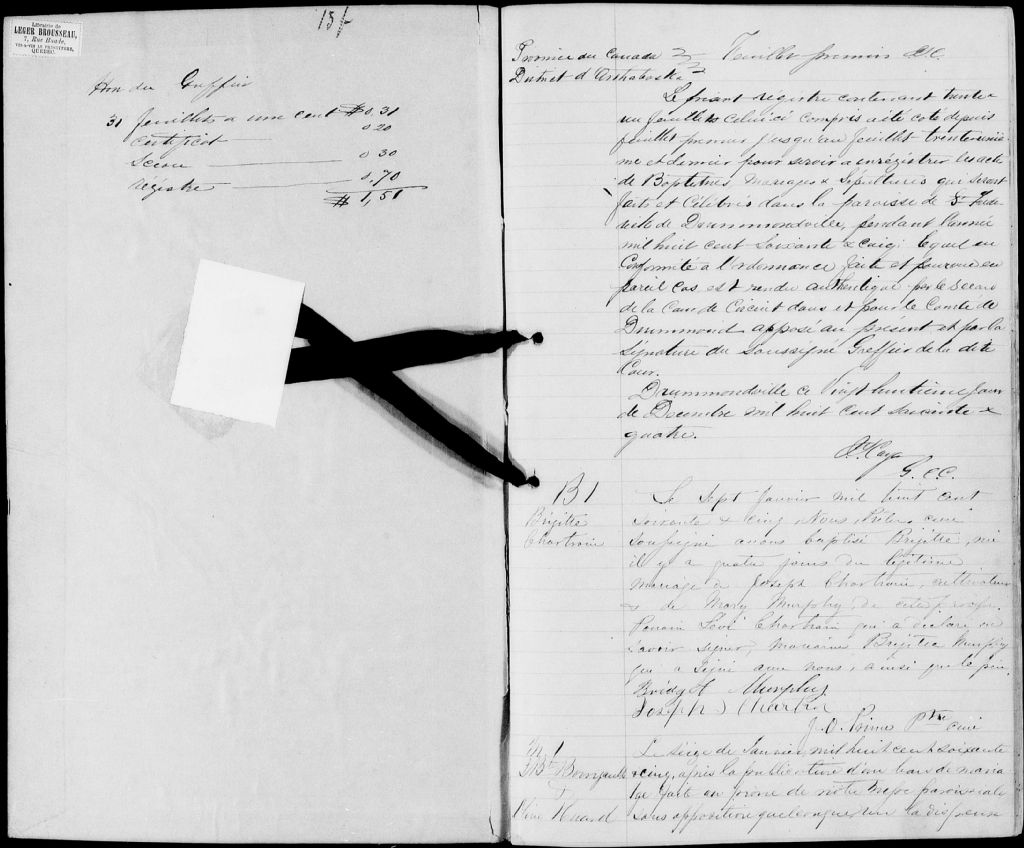 Librairie de
LEGER BROUSSEAU,
7, Rue Buade,
VIS-A-VIS LE PRESBYTERE,
QUEBEC.
Hon du Greffier
31 feuillets a une cent $0,31
Certificat 0 20
Sceau 0 30
Régistre 0,70
$ 1,51
Province du Canada
District d'Arthabaska
Feuillet premier
Le présent régistre contenant trente
un feuillets celui ci compris a été coté depuis
feuillet premier jusqu'au feuillet trente uniè
me et dernier pour servir a enrégistrer les acte
de Baptêmes Mariages & Sépultures qui seront
faits et célébrés dans la paroisse de St Fréde
de Drummondville, pendant l'année
mil huit cent soixante & cinq. lequel en
Conformité a l'ordonnance faite et pourvue en
pareil cas est rendu authentique par le Sceau
de la Cour de Circuit dans et pour le Comté de
Drummond apposé au présent et par la
Signature du Soussigné Greffier de la dite
Cour.
Drummondville ce Vingt huitième jour
de Decembre mil huit cent soixante &
quatre.
G. C.C.
B1
Brigitte
Chartrain
Le Sept Janvier mil huit cent
soixante & cinq Nous Ptre, curé
soussigné avons baptisé Brigitte, née
il y a quatre jours du légitime
mariage de Joseph Chartrain, cultivateur
& de Mary Murphy de cette paroisse.
Parrain Levi Chartrain qui a déclaré ne
savoir signer, marraine Brigitte Murphy
qui a signé avec nous, ainsi que le père.
Bridget Murphy
Joseph Chartrin
J. O. Prince Ptre curé
M. 1
J. Bte Bourgault
&
Huard
Le seize de Janvier, mil huit cent soixante
& cinq, après la publication d'un ban de maria
ge faite au prone de notre messe paroissiale
sans opposition quelconque, vu la dispense